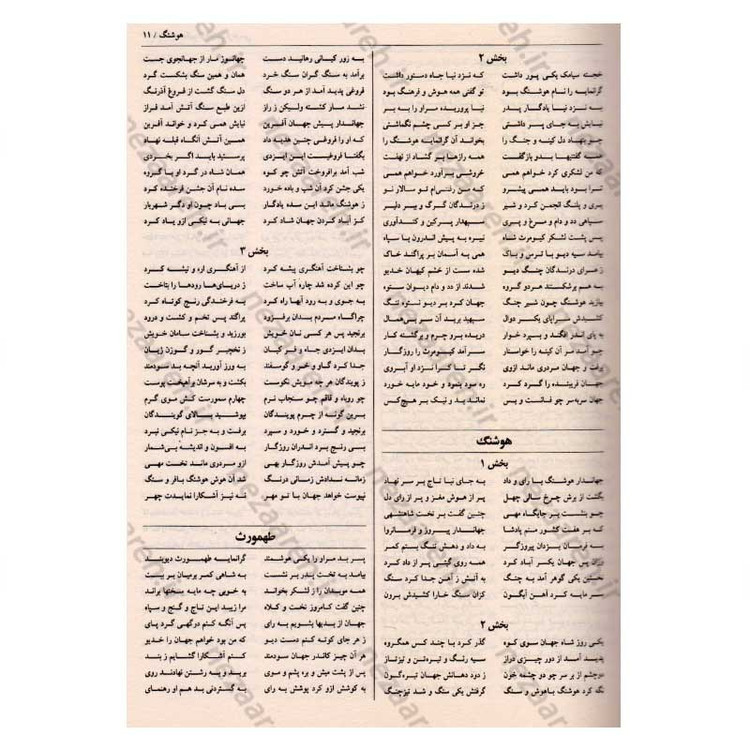 هوشنگ / ۱۱
بخش ۲
خجسته سیامک یکی پور داشت که نزد نیا جاه دستور داشت
گرانمایه را نام هوشنگ بود تو گفتی همه هوش و فرهنگ بود
به نزد نیا یادگار پدر نیا پروریده مراو را به بر
نیایش به جای پسر داشتی جز او بر کسی چشم نگماشتی
چو بنهاد دل کینه و جنگ را بخواند آن گرانمایه هوشنگ را
همه گفتنیها بدو بازگفت همه رازها بر گشاد از نهفت
که من لشکری کرد خواهم همی خروشی برآورد خواهم همی
ترا بود باید همی پیشرو که من رفتنی‌ام تو سالار نو
پری و پلنگ انجمن کرد و شیر ز درندگان گرگ و ببر دلیر
سپاهی دد و دام و مرغ و پری سپهدار پرکین و کنداوری
پس پشت لشکر کیومرث شاه نبیره به پیش اندرون با سپاه
بیامد سیه دیو با ترس و باک همی به آسمان بر پراگند خاک
ز هرای درندگان چنگ دیو شده سست از خشم کیهان خدیو
به هم برشکستند هردو گروه شدند از دد و دام دیوان ستوه
بیازید هوشنگ چون شیر چنگ جهان کرد بر دیو نستوه تنگ
کشیدش سراپای یکسر دوال سپهبد برید آن سر بی‌همال
به پای اندر افگند و بسپرد خوار دریده برو چرم و برگشته کار
چو آمد مر آن کینه را خواستار سرآمد کیومرث را روزگار
برفت و جهان مردری ماند ازوی نگر تا کرا نزد او آبروی
جهان فریبنده را گرد کرد ره سود بنمود و خود مایه خورد
جهان سربه‌سر چو فسانست و بس نماند بد و نیک بر هیچ‌کس
هوشنگ
بخش ۱
جهاندار هوشنگ با رای و داد به جای نیا تاج بر سر نهاد
بگشت از برش چرخ سالی چهل پر از هوش مغز و پر از رای دل
چو بنشست بر جایگاه مهی چنین گفت بر تخت شاهنشهی
که بر هفت کشور منم پادشا جهاندار پیروز و فرمانروا
به فرمان یزدان پیروزگر به داد و دهش تنگ بستم کمر
وزان پس جهان یکسر آباد کرد همه روی گیتی پر از داد کرد
نخستین یکی گوهر آمد به چنگ به آتش ز آهن جدا کرد سنگ
سر مایه کرد آهن آبگون کزان سنگ خارا کشیدش برون
بخش ۲
یکی روز شاه جهان سوی کوه گذر کرد با چند کس همگروه
پدید آمد از دور چیزی دراز سیه رنگ و تیره‌تن و تیزتاز
دوچشم از بر سر چو دو چشمه خون ز دود دهانش جهان تیره‌گون
نگه کرد هوشنگ باهوش و سنگ گرفتش یکی سنگ و شد تیزچنگ
به زور کیانی رهانید دست جهانسوز مار از جهانجوی جست
برآمد به سنگ گران سنگ خرد همان و همین سنگ بشکست گرد
فروغی پدید آمد از هر دو سنگ دل سنگ گشت از فروغ آذرنگ
نشد مار کشته ولیکن ز راز ازین طبع سنگ آتش آمد فراز
جهاندار پیش جهان آفرین نیایش همی کرد و خواند آفرین
که او را فروغی چنین هدیه داد همین آتش آنگاه قبله نهاد
بگفتا فروغیست این ایزدی پرستید باید اگر بخردی
شب آمد برافروخت آتش چو کوه همان شاه در گرد او با گروه
یکی جشن کرد آن شب و باده خورد سده نام آن جشن فرخنده کرد
ز هوشنگ ماند این سده یادگار بسی باد چون او دگر شهریار
کز آباد کردن جهان شاد کرد جهانی به نیکی ازو یاد کرد
بخش ۳
چو بشناخت آهنگری پیشه کرد از آهنگری اره و تیشه کرد
چو این کرده شد چاره آب ساخت ز دریای‌ها رودها را بتاخت
به جوی و به رود آبها راه کرد به فرخندگی رنج کوتاه کرد
چراگاه مردم بدان برفزود پراگند پس تخم و کشت و درود
برنجید پس هر کسی نان خویش بورزید و بشناخت سامان خویش
بدان ایزدی جاه و فر کیان ز نخچیر گور و گوزن ژیان
جدا کرد گاو و خر و گوسفند به ورز آورید آنچه بد سودمند
ز پویندگان هر چه مویش نکوست بکشت و به سرشان برآهیخت پوست
چو روباه و قاقم چو سنجاب نرم چهارم سمورست کش موی گرم
برین گونه از چرم پویندگان بپوشید بالای گویندگان
برنجید و گسترد و خورد و سپرد برفت و به جز نام نیکی نبرد
بسی رنج برد اندران روزگار به افسون و اندیشه بی‌شمار
چو پیش آمدش روزگار بهی ازو مردری ماند تخت مهی
زمانه ندادش زمانی درنگ شد آن هوش هوشنگ بافر و سنگ
نپیوست خواهد جهان با تو مهر نه نیز آشکارا نمایدت چهر
طهمورث
پسر بد مراو را یکی هوشمند گرانمایه طهمورث دیوبند
بیامد به تخت پدر بر نشست به شاهی کمر برمیان بر ببست
همه موبدان را ز لشکر بخواند به خوبی چه مایه سخنها براند
چنین گفت کامروز تخت و کلاه مرا زیبد این تاج و گنج و سپاه
جهان از بدیها بشویم به رای پس آنگه کنم درگهی گرد پای
ز هر جای کوته کنم دست دیو که من بود خواهم جهان را خدیو
هر آن چیز کاندر جهان سودمند کنم آشکارا گشایم ز بند
پس از پشت میش و بره پشم و موی برید و به رشتن نهادند روی
به کوشش ازو کرد پوشش به رای به گستردنی بد هم او رهنمای
nezaareh.ir